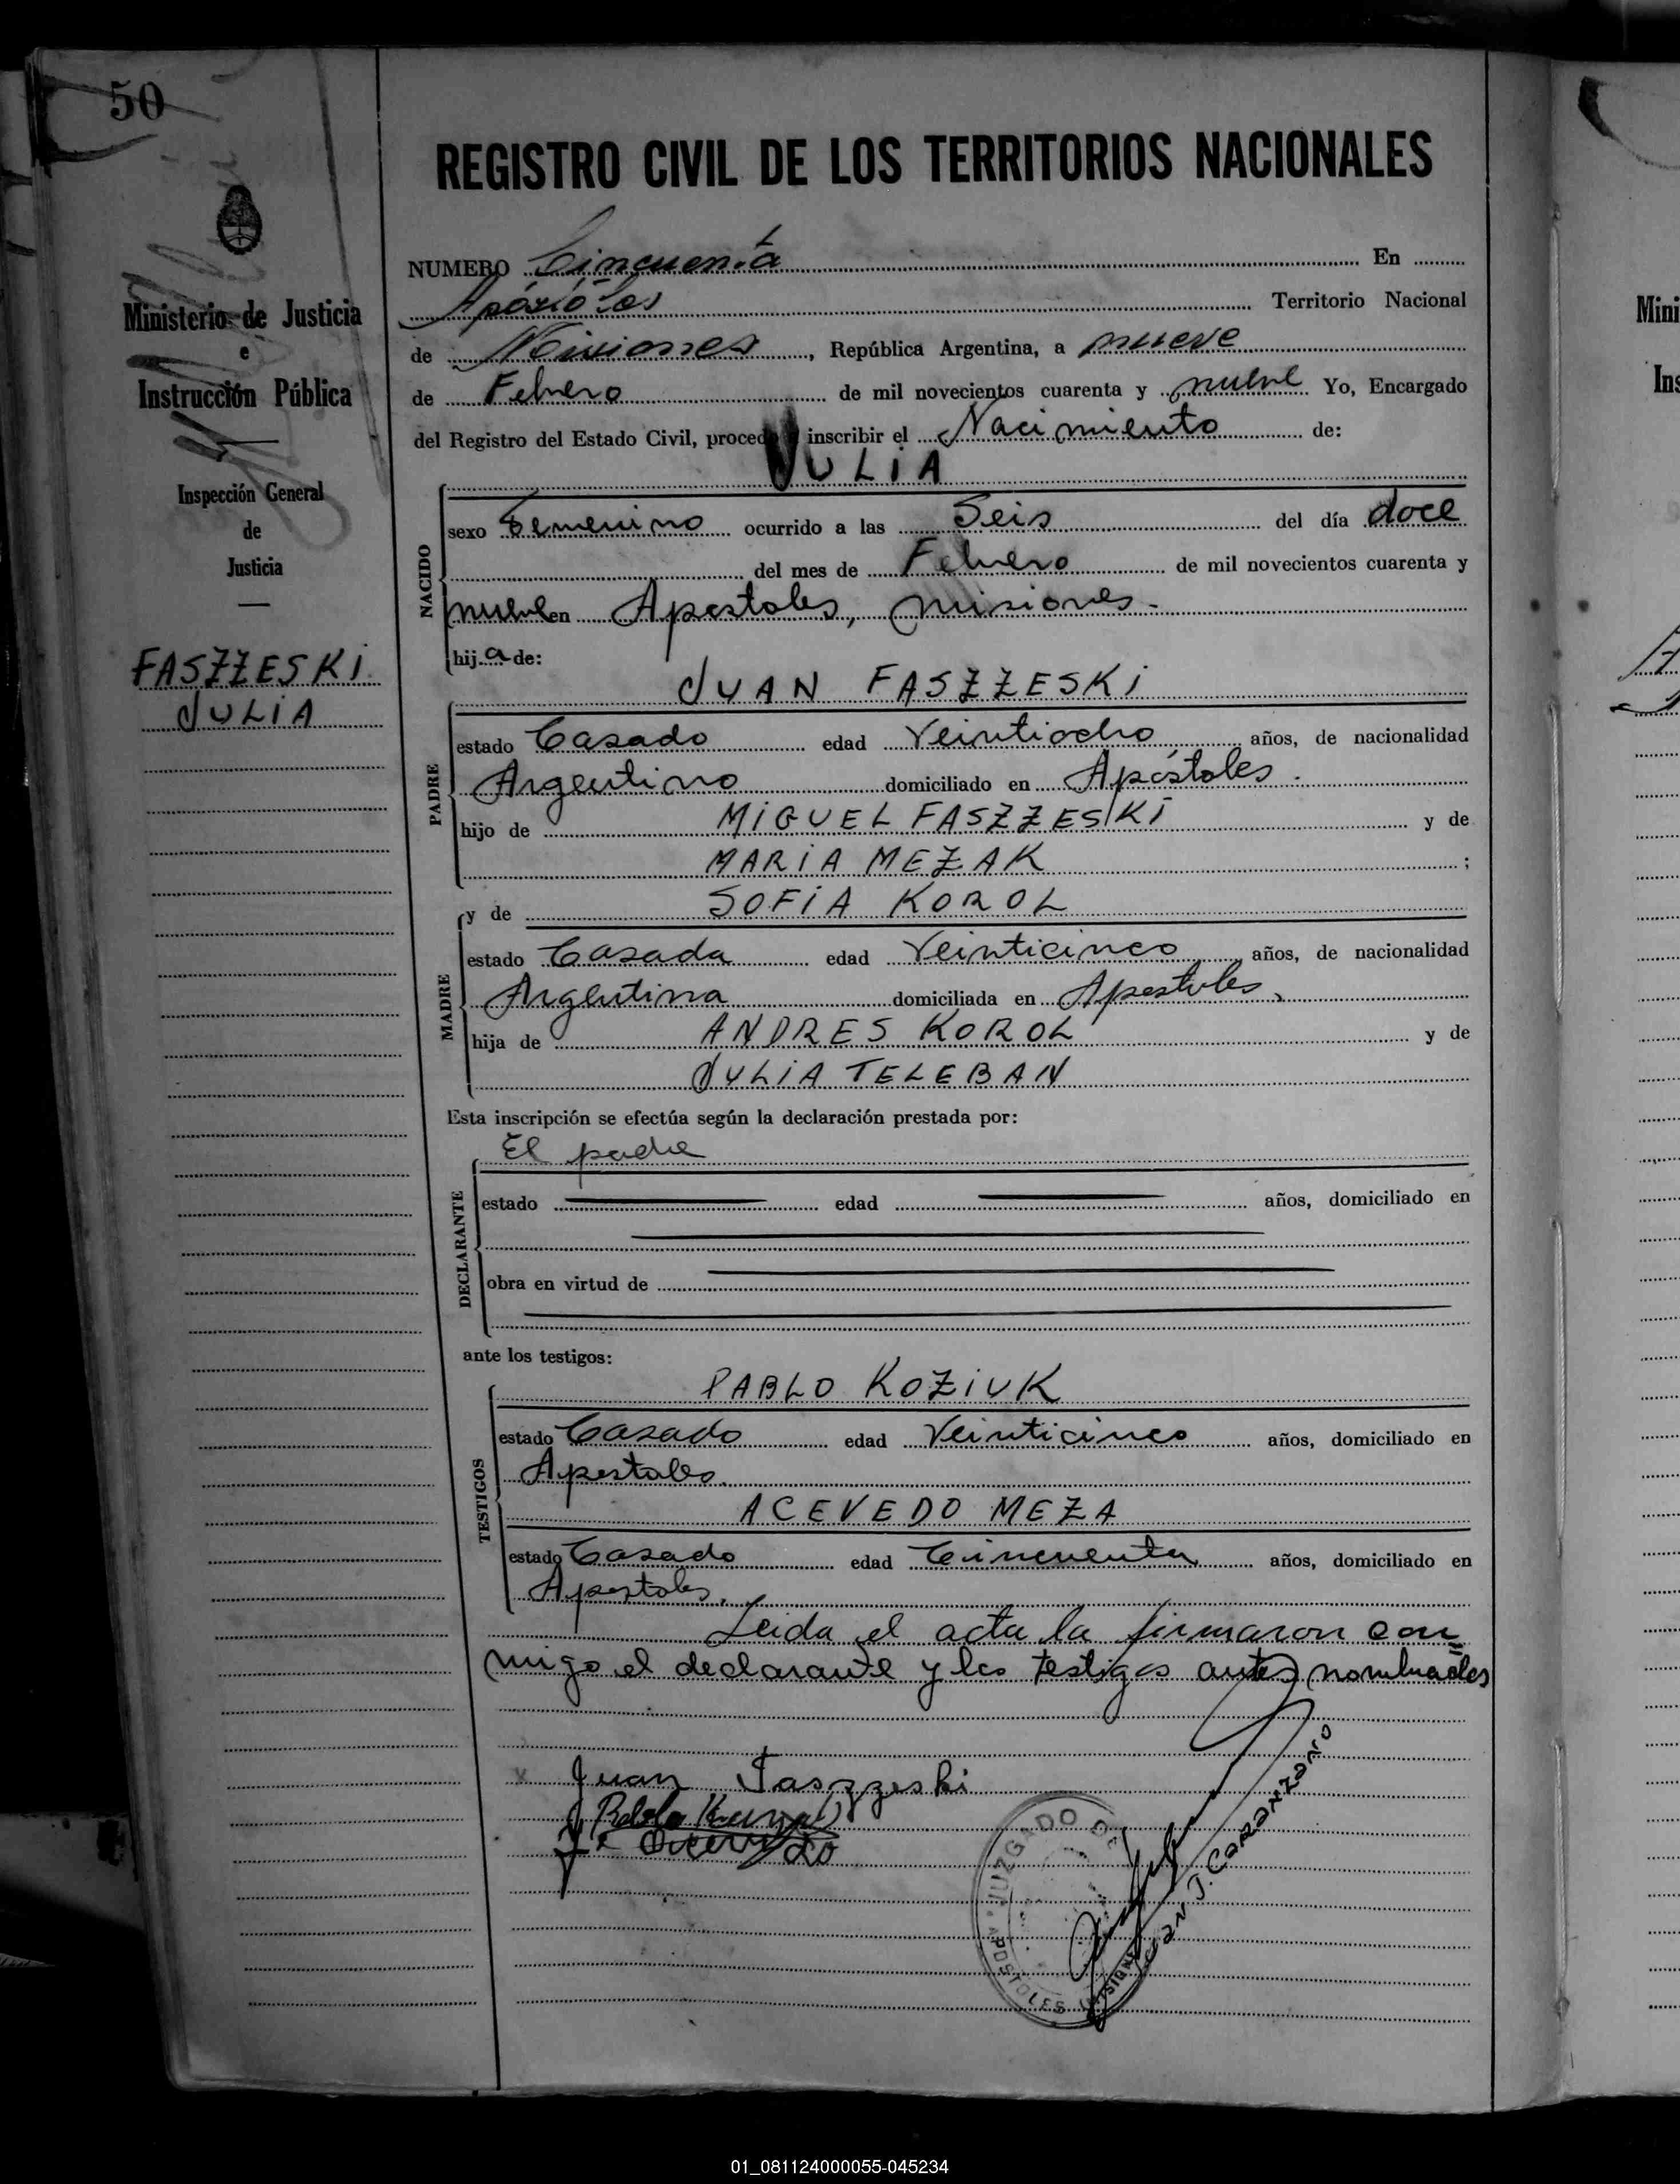 50
REGISTRO CIVIL DE LOS TERRITORIOS NACIONALES
NUMERO Cincuenta En
Apóstoles Territorio Nacional
de Misiones, República Argentina, a nueve
de Febrero de mil novecientos cuarenta y nueve Yo, Encargado
del Registro del Estado Civil, proced inscribir el Nacimiento de:
JULIA
Ministerio de Justicia
e
Instrucción Pública
Inspección General
de
Justicia
FASZZESKI
JULIA
NACIDO
sexo Femenino ocurrido a las Seis del día doce
del mes de Febrero de mil novecientos cuarenta y
nueve en Apostoles, misiones.
hij a de:
JUAN FASZZESKI
PADRE
estado Casado edad Veintiocho años, de nacionalidad
Argentino domiciliado en Apóstoles.
hijo de MIGUEL FASZZESKI y de
MARIA MEZAK ;
y de SOFIA KOROL
MADRE
estado Casada edad Veinticinco años, de nacionalidad
Argentina domiciliada en Apostoles,
hija de ANDRES KOROL y de
JULIA TELEBAN
Esta inscripción se efectúa según la declaración prestada por:
El padre
DECLARANTE
estado edad años, domiciliado en
obra en virtud de
ante los testigos:
PABLO KOZIUK
TESTIGOS
estado Casado edad Veinticinco años, domiciliado en
Apostoles.
ACEVEDO MEZA
estado Casado edad Cincuenta años, domiciliado en
Apostoles.
Leida el acta la firmaron con=
migo el declarante y los testigos antes nombrados
Juan Faszzeski
JUZGADO DE
APOSTOLES MISIONES
JUAN J. CARANZANO
01_081124000055-045234